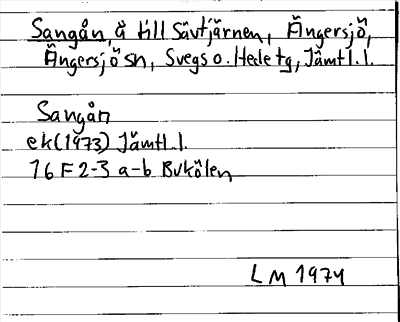 Sangån, å till Sävtjärnen, Ängersjö,
Ängersjö sn, Svegs o. Hede tg, Jämtl.l.
Sangån
ek(1973) Jämtl.l.
16 F 2-3 a-b Bukölen
LM 1974